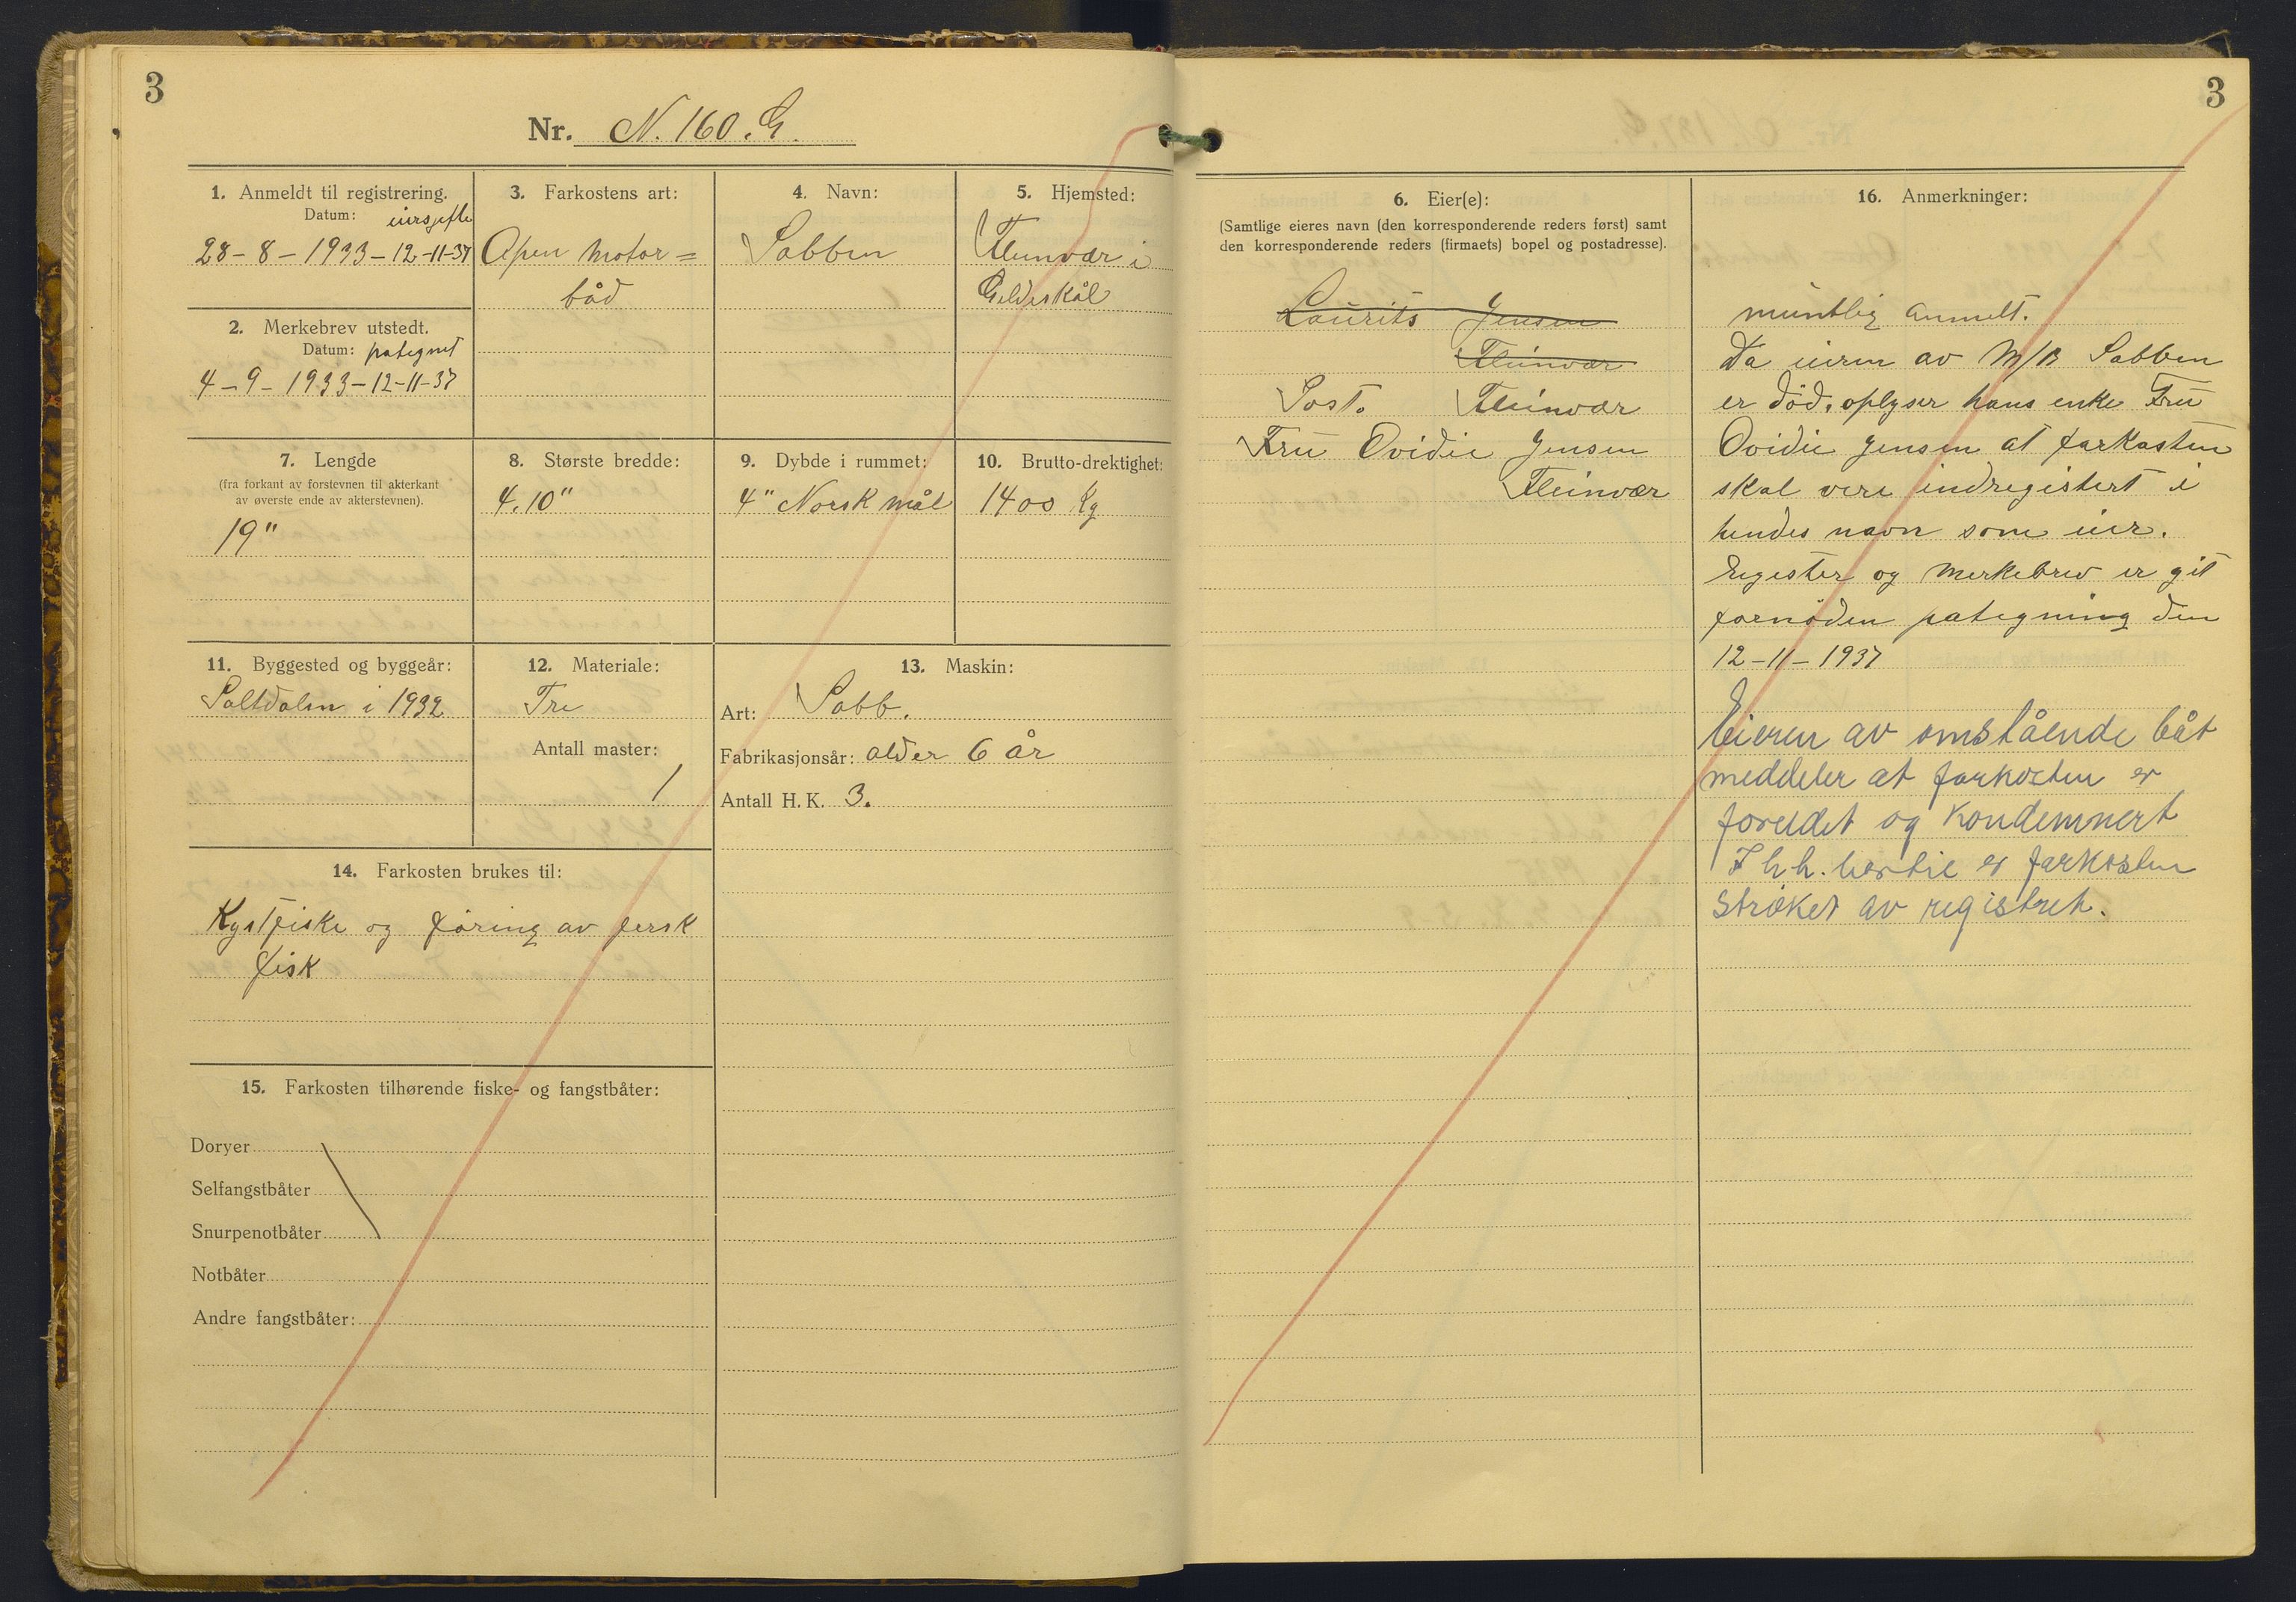 3
Nr. N. 160. G.
1. Anmeldt til registrering.
Datum: eiersjefte
28-8-1933-12-11-37
2. Merkebrev utstedt.
Datum: pategnet
4-9-1933-12-11-37
3. Farkostens art:
Apen motor=
båd
4. Navn:
Sabben
5. Hjemsted:
Fleinvær i
Gildeskål
7. Lengde
(fra forkant av forstevnen til akterkant
av øverste ende av akterstevnen).
19"
8. Største bredde:
4.10"
9. Dybde i rummet:
4" Norsk mål
10. Brutto-drektighet:
1400 Kg
11. Byggested og byggeår:
Saltdalen i 1932
12. Materiale:
Tre
Antall master:
1
13. Maskin:
Art: Sabb.
Fabrikasjonsår: alder 6 år
Antall H. K. 3.
14. Farkosten brukes til:
Kystfiske og føring av fersk
fisk
15. Farkosten tilhørende fiske- og fangstbåter:
Doryer
Selfangstbåter
Snurpenotbåter
Notbåter
Andre fangstbåter:
3
6. Eier(e):
(Samtlige eieres navn (den korresponderende reders først) samt
den korresponderende reders (firmaets) bopel og postadresse).
Laurits Jensen
Fleinvær
Post. Fleinvær
Fru Ovidie Jensen
Fleinvær
16. Anmerkninger:
muntlig anmelt.
Da eieren av M/B Sabben
er død, oplyser hans enke Fru
Ovidie Jensen at farkosten
skal vere indregistert i
hendes navn som eier.
Register og Merkebrev er git
fornøden pategning den
12-11-1937
Eieren av omstående båt
meddeler at farkosten er
foreldet og kondemnert
I h.h. hertil er farkosten
strøket av registret.